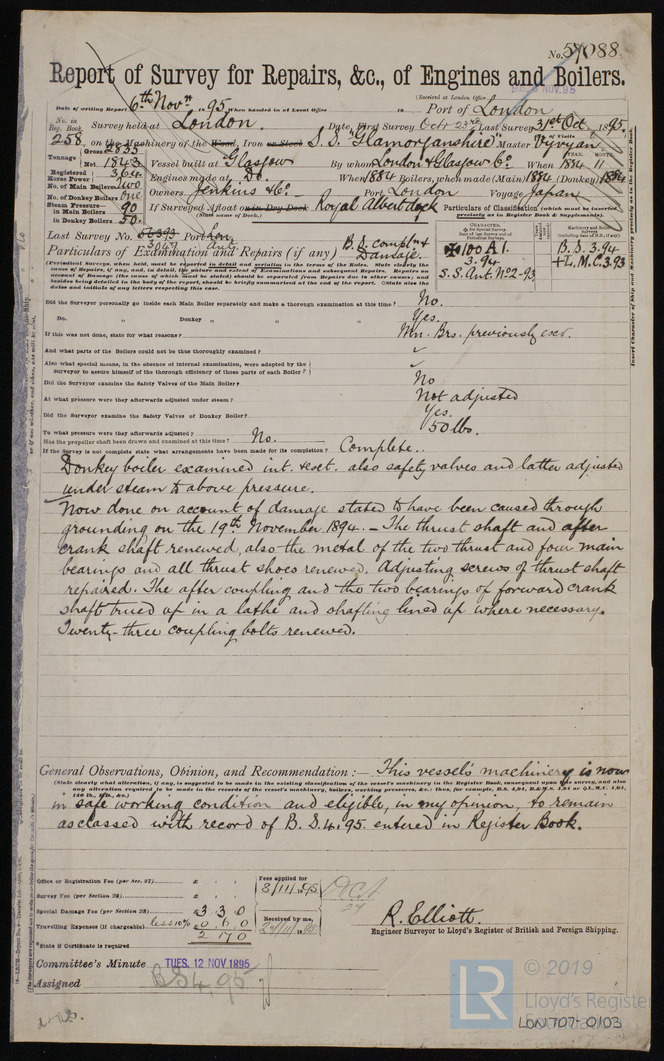 No. 57088.
Report of Survey for Repairs, &c., of Engines and Boilers.
(Received at London Office
NOV.95
Date of writing Report 6th Novr 1895. When handed in at Local Office 18 Port of London
No. in Reg. Book. Survey held at London. Date, First Survey Octr 23rd Last Survey 31st Oct, 1895.
258 on the Machinery of the Wood, Iron or Steel S.S. "Glamorganshire" Master Vyvyan.
Tonnage Gross 2835 Net 1843 Vessel built at Glasgow By whom London & Glasgow Co. When 1884 11
Registered Horse Power 364 Engines made at Do. When 1884 Boilers, when made (Main) 1884 (Donkey) 1884
No. of Main Boilers Two
No. of Donkey Boilers One Owners Jenkins & Co. Port London Voyage Japan
Steam Pressure— in Main Boilers 90 in Donkey Boilers 50. If Surveyed Afloat or in Dry Dock Royal Albert dock
(State name of Dock.)
Particulars of Classification (which must be inserted precisely as in Register Book & Supplements).
Last Survey No. 56393 Port Lon.
3047 Ant.
Particulars of Examination and Repairs (if any) B.S. compln & Damage.
✠100A1. 3.94 S.S. Ant. No2-93
B.S. 3.94 +L.M.C. 3.93
Did the Surveyor personally go inside each Main Boiler separately and make a thorough examination at this time? No.
Do. „ Donkey „ „ „ „ Yes.
If this was not done, state for what reasons? Mn. Brs. previously exd.
And what parts of the Boilers could not be thus thoroughly examined? ✓
Also what special means, in the absence of internal examination, were adopted by the Surveyor to assure himself of the thorough efficiency of those parts of each Boiler? ✓
Did the Surveyor examine the Safety Valves of the Main Boiler? No
At what pressure were they afterwards adjusted under steam? Not adjusted
Did the Surveyor examine the Safety Valves of Donkey Boiler? Yes.
To what pressure were they afterwards adjusted? 50 lbs.
Has the propeller shaft been drawn and examined at this time? No.
If the Survey is not complete state what arrangements have been made for its completion? Complete.
Donkey boiler examined int. & ext. also safety valves and latter adjusted
under steam to above pressure.
Now done on account of damage stated to have been caused through
grounding on the 19th November 1894. — The thrust shaft and after
crank shaft renewed, also the metal of the two thrust and four main
bearings and all thrust shoes renewed. Adjusting screws of thrust shaft
repaired. The after coupling and the two bearings of forward crank
shaft trued up in a lathe and shafting lined up where necessary.
Twenty-three coupling bolts renewed.
General Observations, Opinion, and Recommendation:— This vessel's machinery is now
in safe working condition and eligible, in my opinion, to remain
as classed with record of B.S. 4.95. entered in Register Book.
Office or Registration Fee (per Sec. 27) £
Survey Fee (per Section 28) £
Special Damage Fee (per Section 28) £ 3 3 0
Travelling Expenses (if chargeable) less 10% 0 6 0
2 17 0
Fees applied for 8/11/1895
Received by me,
*State if Certificate is required
R. Elliott.
Engineer Surveyor to Lloyd's Register of British and Foreign Shipping.
Committee's Minute TUES. 12 NOV 1895
Assigned BS 4,95
LR © 2019
Lloyd's Register
Foundation
LON707-0103